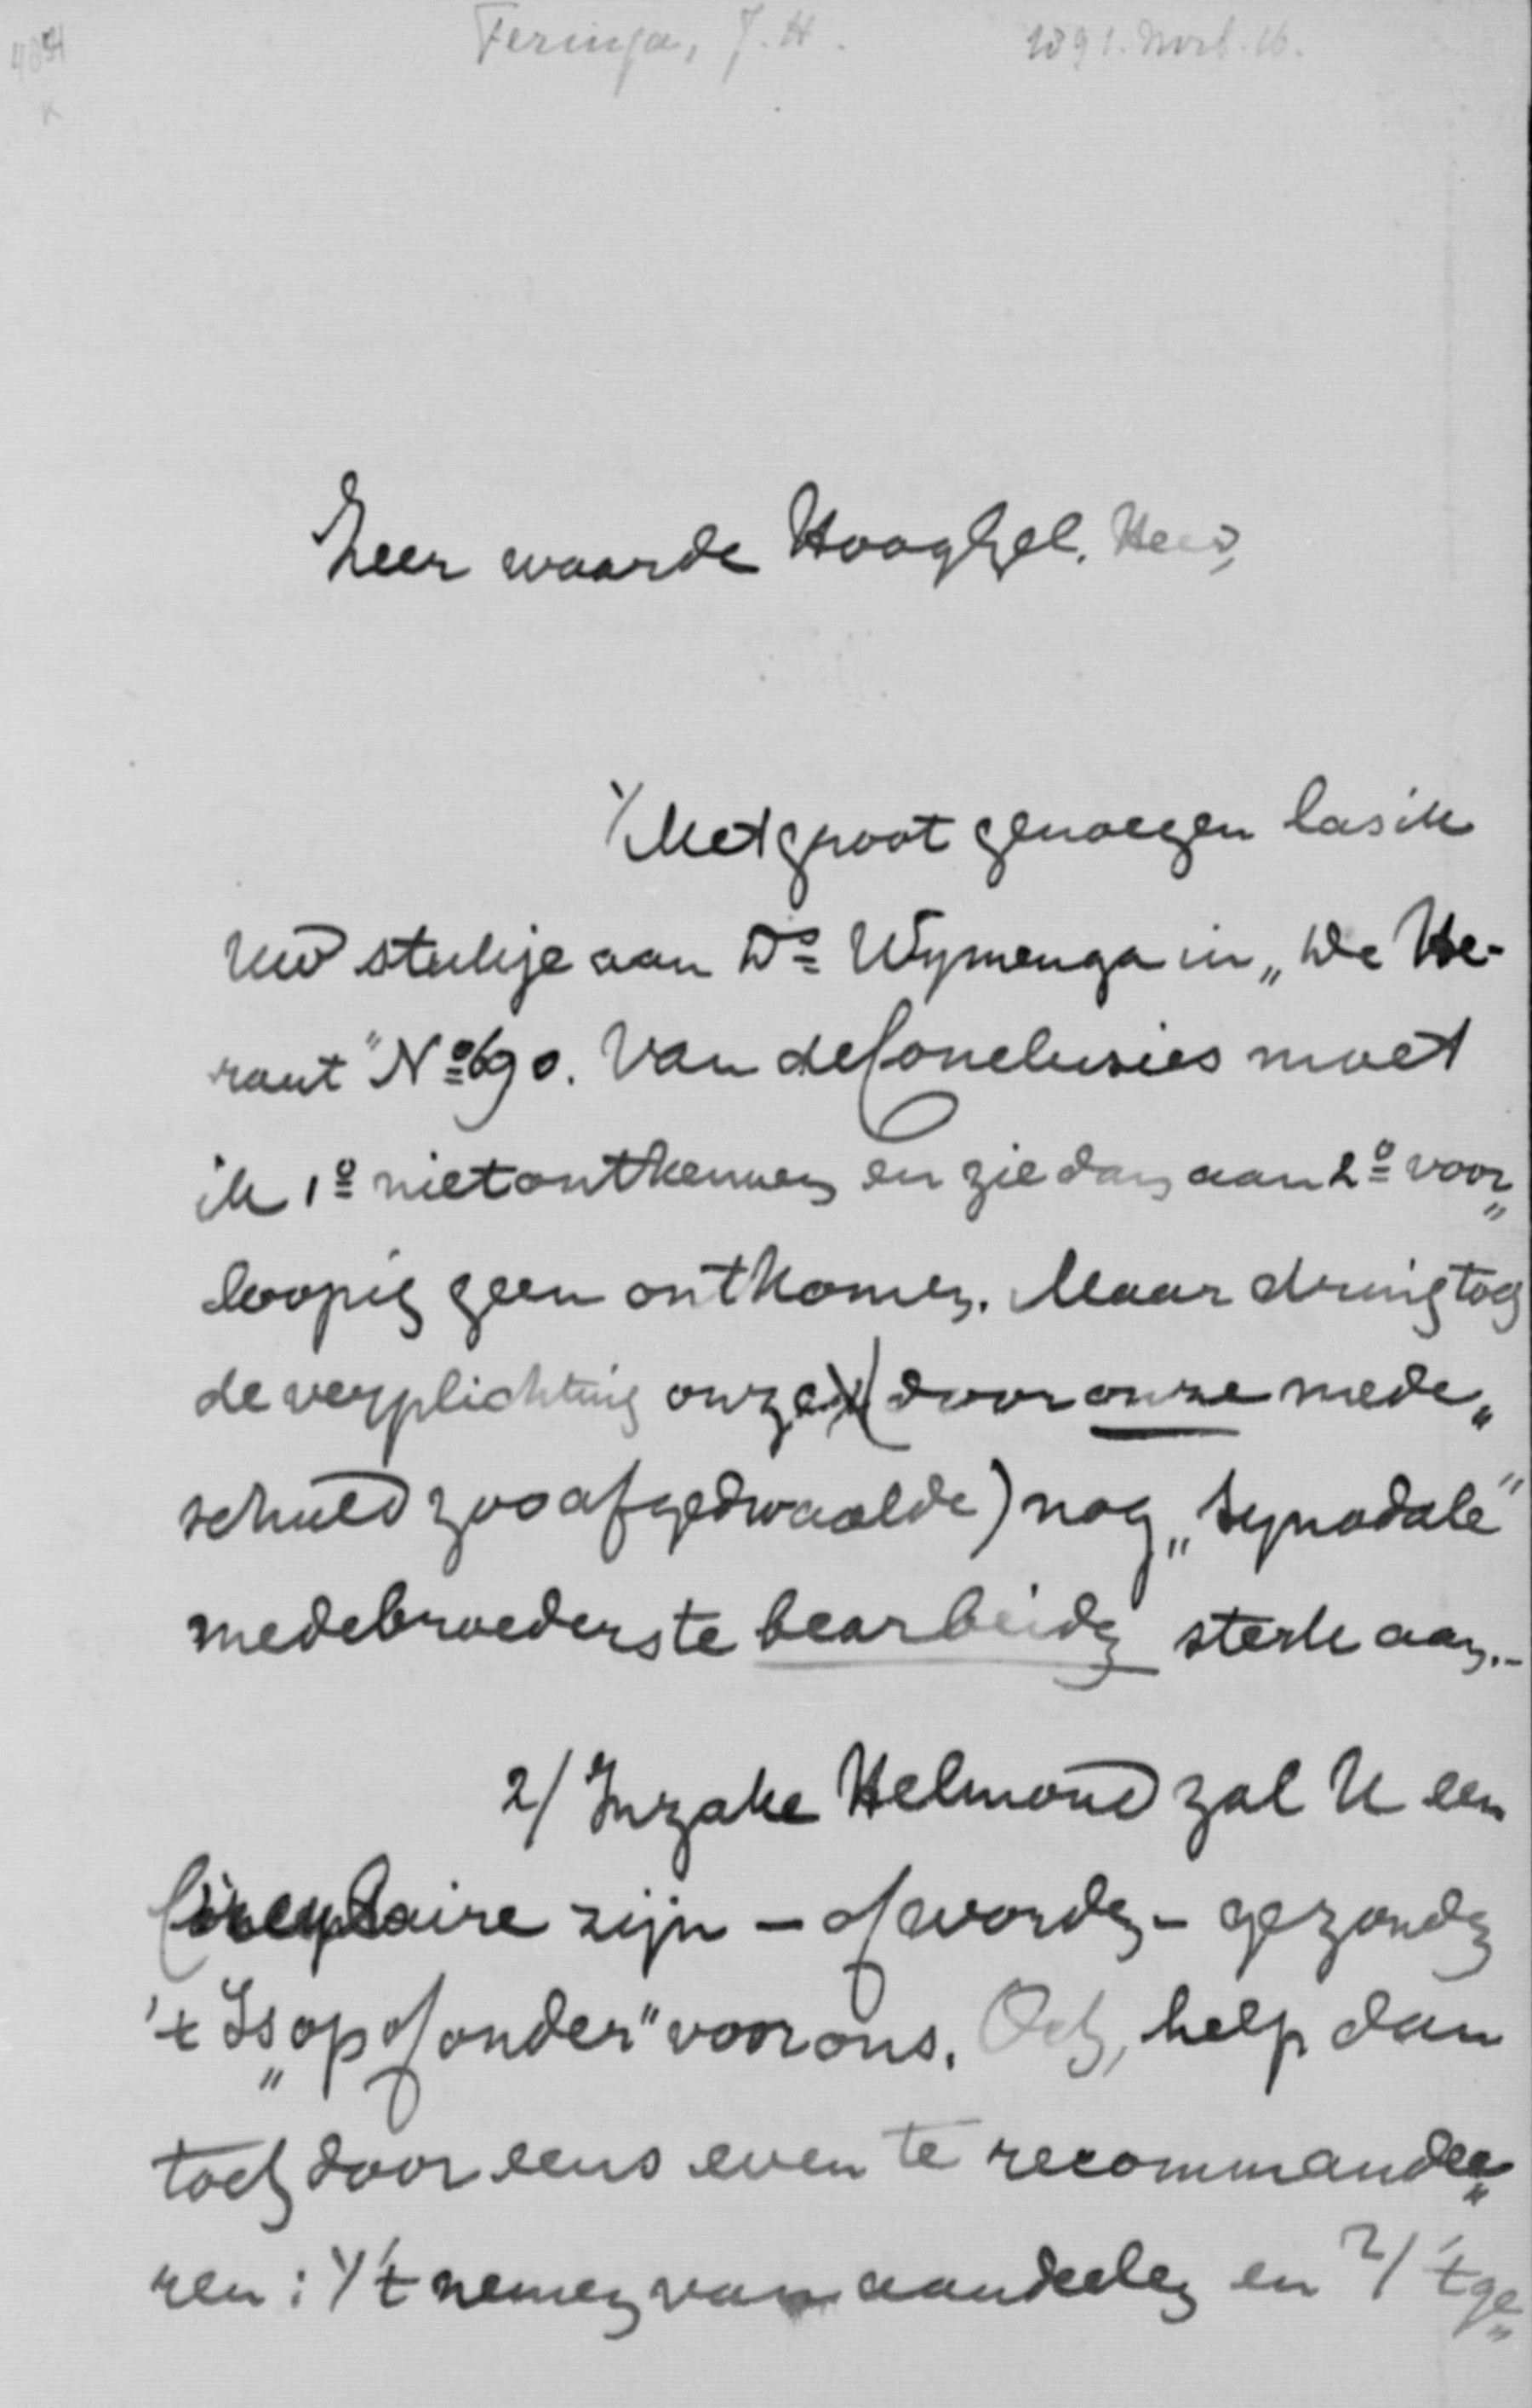 Feringa, J. H. 1891. Novb. 16.
Zeer waarde Hooggel. Heer,
1/ Met groot genoegen las ik
Uw stukje aan Ds Wymenga in „De He-
raut" No 690. Van de Conclusies moet
ik 1o niet ontkennen en zie dan aan 2o voor„
loopig geen ontkomen. Maar dring tog
de verplichting onze (door onze mede„
schuld zoo afgedwaalde) nog „Synodale"
medebroeders te bearbeiden sterk aan.-
2/ Inzake Helmond zal U een
Circulaire zijn - of worden - gezonden
't Is „op of onder" voor ons. Och, help dan
toch door eens even te recommandee„
ren: 1/ 't nemen van aandeelen en 2/ 't ge„